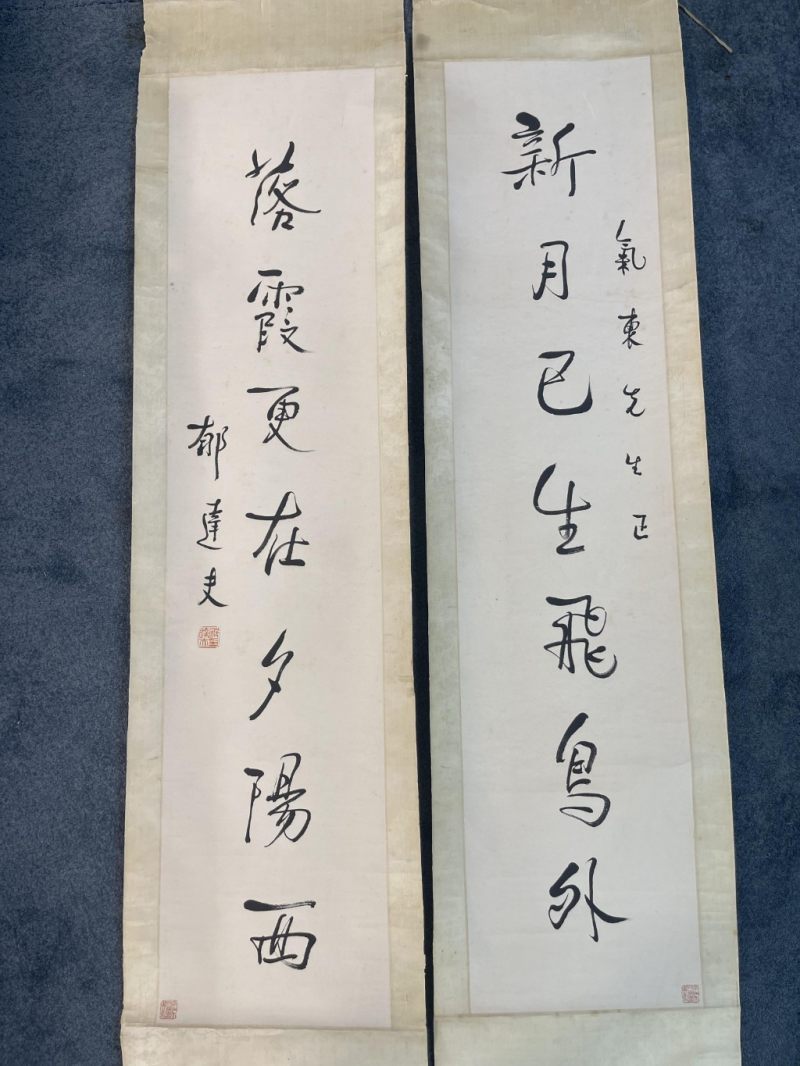 新月已生飛鳥外
氣東先生正
落霞更在夕陽西
郁達夫